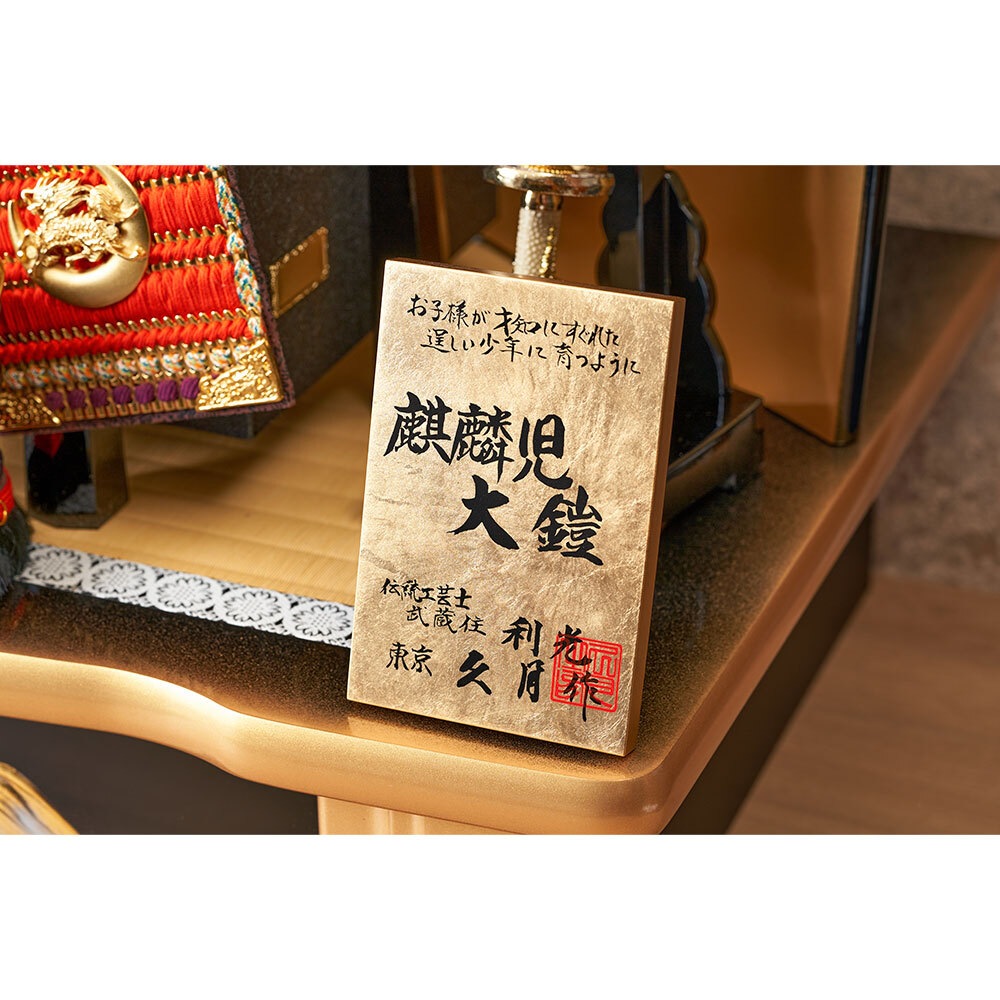 お子様が才知にすぐれた
逞しい少年に育つように
麒麟児
大鎧
伝統工芸士
武蔵住 利光作
東京 久月